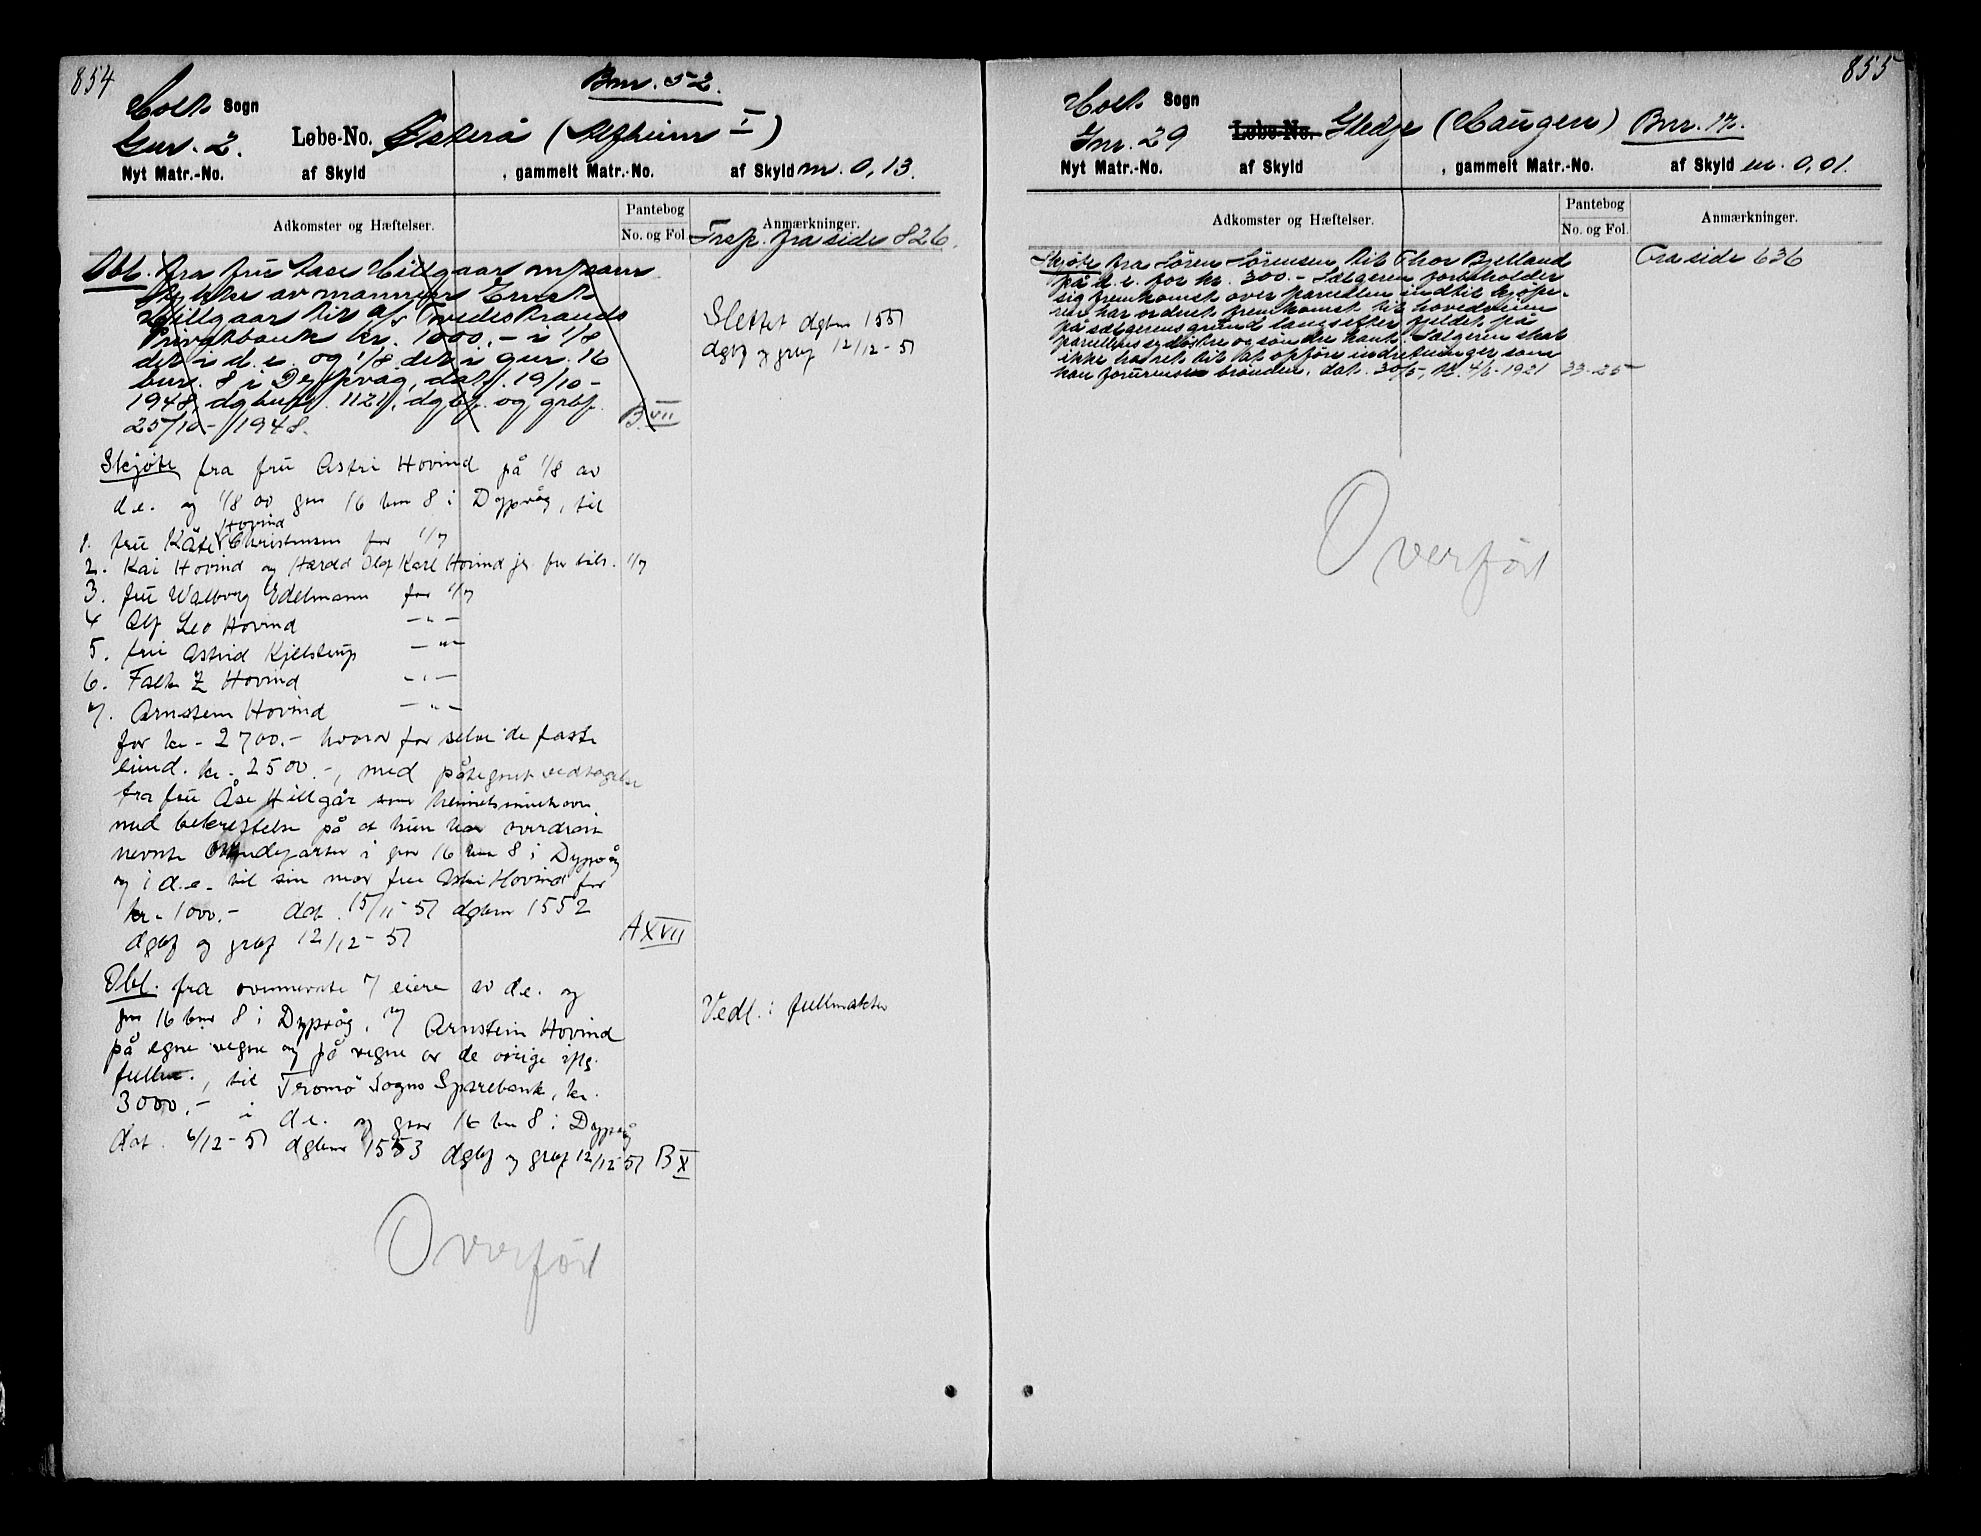 854
Bnr. 52.
Holt Sogn
Gnr. 2. Løbe-No. Østerå (Alfheim I)
Nyt Matr.-No. af Skyld , gammelt Matr.-No. af Skyld m. 0,13.
Adkomster og Hæftelser. Pantebog No. og Fol. Anmærkninger.
Trsp. fra side 826.
Obl. fra fru Aase Hillgaar m/sam
tykke av mannen Ernst
Hillgaar til A/S Tvedestrands
Privatbank kr. 1000.- i 1/8
del i d.e. og 1/8 del i gnr. 16
bnr. 8 i Dypvåg, dat. 19/10-
1948, dgbnr. 1121, dgbf. og grbf.
25/10-1948. B.VII
Slettet dgbnr 1551
dgbf og grbf 12/12-51
Skjøte fra fru Astri Hovind på 1/8 av
d.e. og 1/8 av gnr 16 bnr 8 i Dypvåg, til
1. fru Käte Hovind Christmann for 1/7
2. Kai Hovind og Harald Olaf Karl Hovind jr. for tils. 1/7
3. fru Walborg Edelmann for 1/7
4 Alf Leo Hovind -"-
5. fru Astrid Kjellstrup -"-
6. Falk Z Hovind -"-
7. Arnstein Hovind -"-
for kr. 2700.- hvorav for selve de faste
eiend. kr. 2500.-, med påtegnet vedtagelse
fra fru Åse Hillgår som hjemmelsinnehaver
med bekreftelse på at hun har overdratt
nevnte eiendeparter i gnr 16 bnr 8 i Dypvåg
og i d.e. til sin mor fru Astri Hovind for
kr. 1000.- dat. 15/11-51 dgbnr 1552
dgbf og grbf 12/12-51 A XVII
Obl. fra ovennevnte 7 eiere av d.e. og
gnr 16 bnr 8 i Dypvåg, v/ Arnstein Hovind
på egne vegne og på vegne av de øvrige iflg.
fullm., til Tromø Sogns Sparebank, kr.
3000.- i d.e. og gnr 16 bnr 8 i Dypvåg
dat. 6/12-51 dgbnr 1553 dgbf og grbf 12/12-51 B X
Vedl.: fullmakter
Overført
855
Holt Sogn
Gnr. 29 Løbe-No. Gledje (Haugen) Bnr. 12.
Nyt Matr.-No. af Skyld , gammelt Matr.-No. af Skyld m. 0,01.
Adkomster og Hæftelser. Pantebog No. og Fol. Anmærkninger.
Skjøte fra Søren Sørensen til Thor Bjelland Fra side 636
på d.e. for kr. 300.- Sælgeren forbeholder
sig fremkomst over parcellen indtil kjøpe-
ren har ordnet fremkomst til hovedveien
på sælgerens grund langsefter fjeldet på
parcellens østre og søndre kant. Sælgeren skal
ikke ha ret til at opføre indretninger som
kan forurense brønden. dat. 30/5, tl. 4/6-1921 33-25
Overført